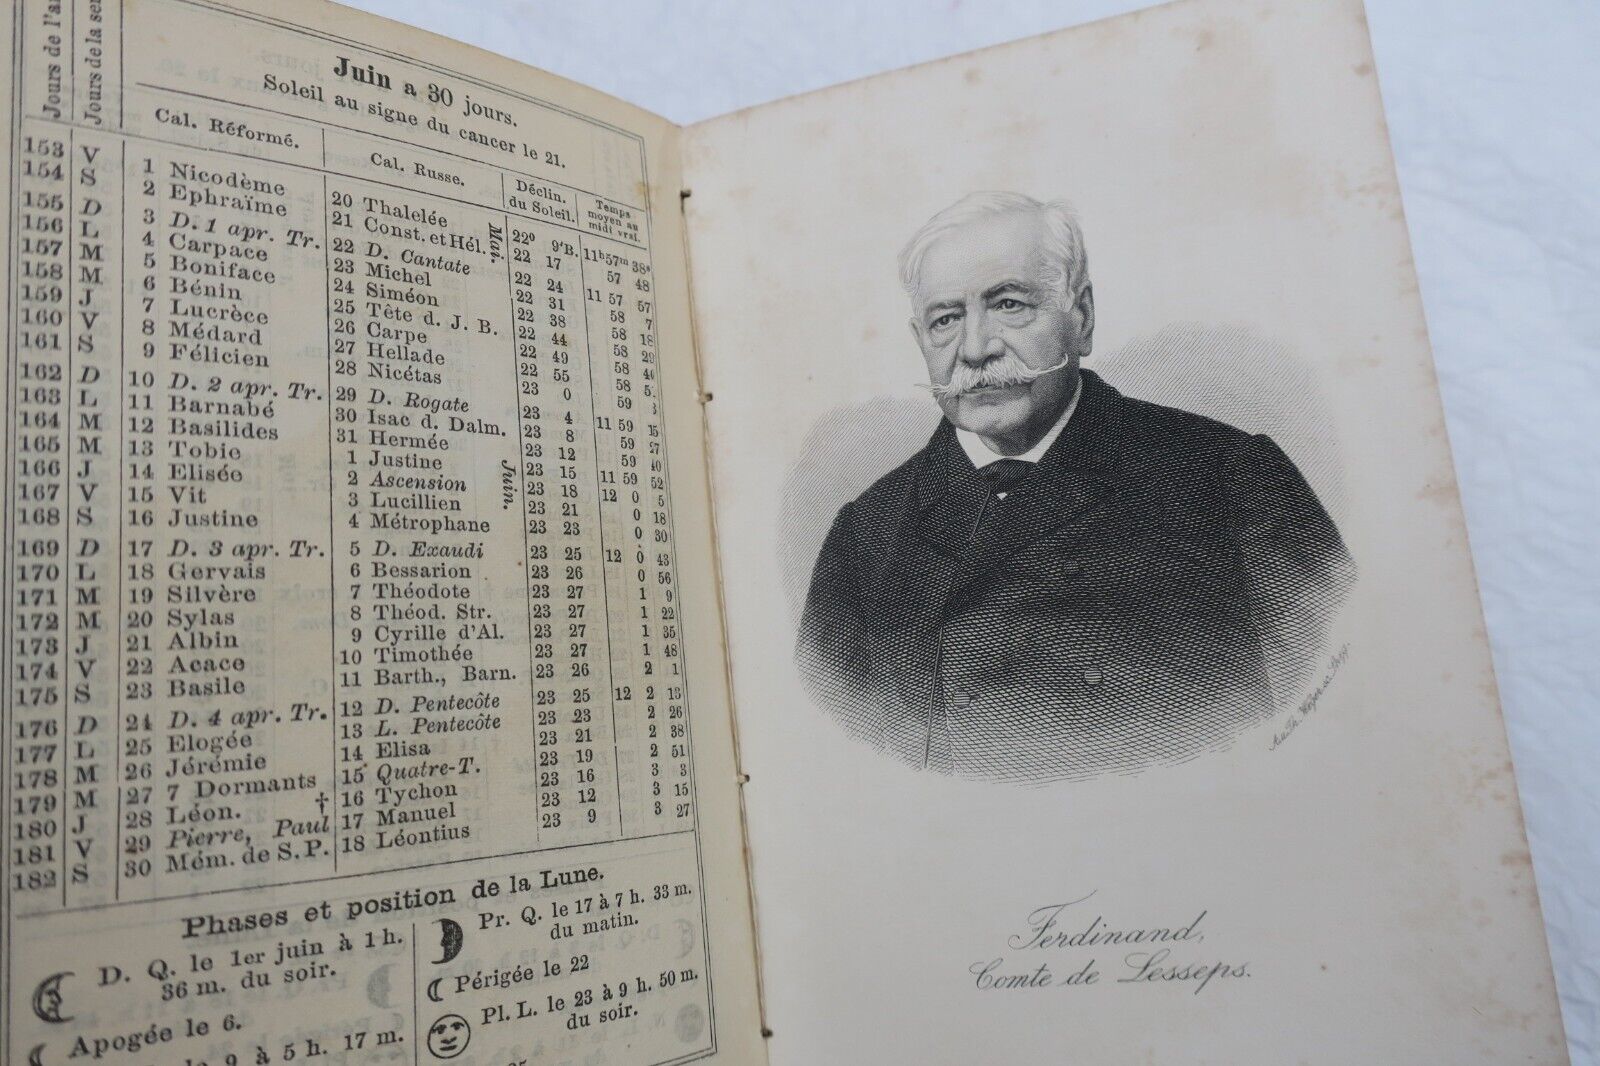 Jours de l'an
Jours de la sem
Juin a 30 jours.
Soleil au signe du cancer le 21.
Cal. Réformé.
Cal. Russe.
Déclin. du Soleil.
Temps moyen au midi vrai.
153 V 1 Nicodème 20 Thalelée Mai. 22° 9'B. 11h57m 38s
154 S 2 Ephraïme 21 Const. et Hél. 22 17 57 48
155 D 3 D. 1 apr. Tr. 22 D. Cantate 22 24 11 57 57
156 L 4 Carpace 23 Michel 22 31 58 7
157 M 5 Boniface 24 Siméon 22 38 58 18
158 M 6 Bénin 25 Tête d. J. B. 22 44 58 29
159 J 7 Lucrèce 26 Carpe 22 49 58 40
160 V 8 Médard 27 Hellade 22 55 58 5
161 S 9 Félicien 28 Nicétas 23 0 59 3
162 D 10 D. 2 apr. Tr. 29 D. Rogate 23 4 11 59 15
163 L 11 Barnabé 30 Isac d. Dalm. 23 8 59 27
164 M 12 Basilides 31 Hermée 23 12 59 40
165 M 13 Tobie 1 Justine Juin. 23 15 11 59 52
166 J 14 Elisée 2 Ascension 23 18 12 0 5
167 V 15 Vit 3 Lucillien 23 21 0 18
168 S 16 Justine 4 Métrophane 23 23 0 30
169 D 17 D. 3 apr. Tr. 5 D. Exaudi 23 25 12 0 43
170 L 18 Gervais 6 Bessarion 23 26 0 56
171 M 19 Silvère 7 Théodote 23 27 1 9
172 M 20 Sylas 8 Théod. Str. 23 27 1 22
173 J 21 Albin 9 Cyrille d'Al. 23 27 1 35
174 V 22 Acace 10 Timothée 23 27 1 48
175 S 23 Basile 11 Barth., Barn. 23 26 2 1
176 D 24 D. 4 apr. Tr. 12 D. Pentecôte 23 25 12 2 13
177 L 25 Elogée 13 L. Pentecôte 23 23 2 26
178 M 26 Jérémie 14 Elisa 23 21 2 38
179 M 27 7 Dormants 15 Quatre-T. 23 19 2 51
180 J 28 Léon. † 16 Tychon 23 16 3 3
181 V 29 Pierre, Paul 17 Manuel 23 12 3 15
182 S 30 Mém. de S. P. 18 Léontius 23 9 3 27
Phases et position de la Lune.
D. Q. le 1er juin à 1 h.
36 m. du soir.
Apogée le 6.
9 à 5 h. 17 m.
Pr. Q. le 17 à 7 h. 33 m.
du matin.
Périgée le 22
Pl. L. le 23 à 9 h. 50 m.
du soir.
Ferdinand,
Comte de Lesseps.